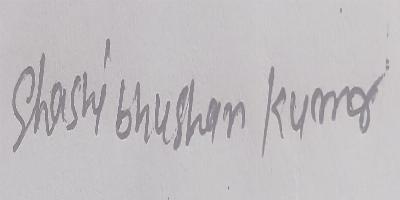 Shashi bhushan kumar